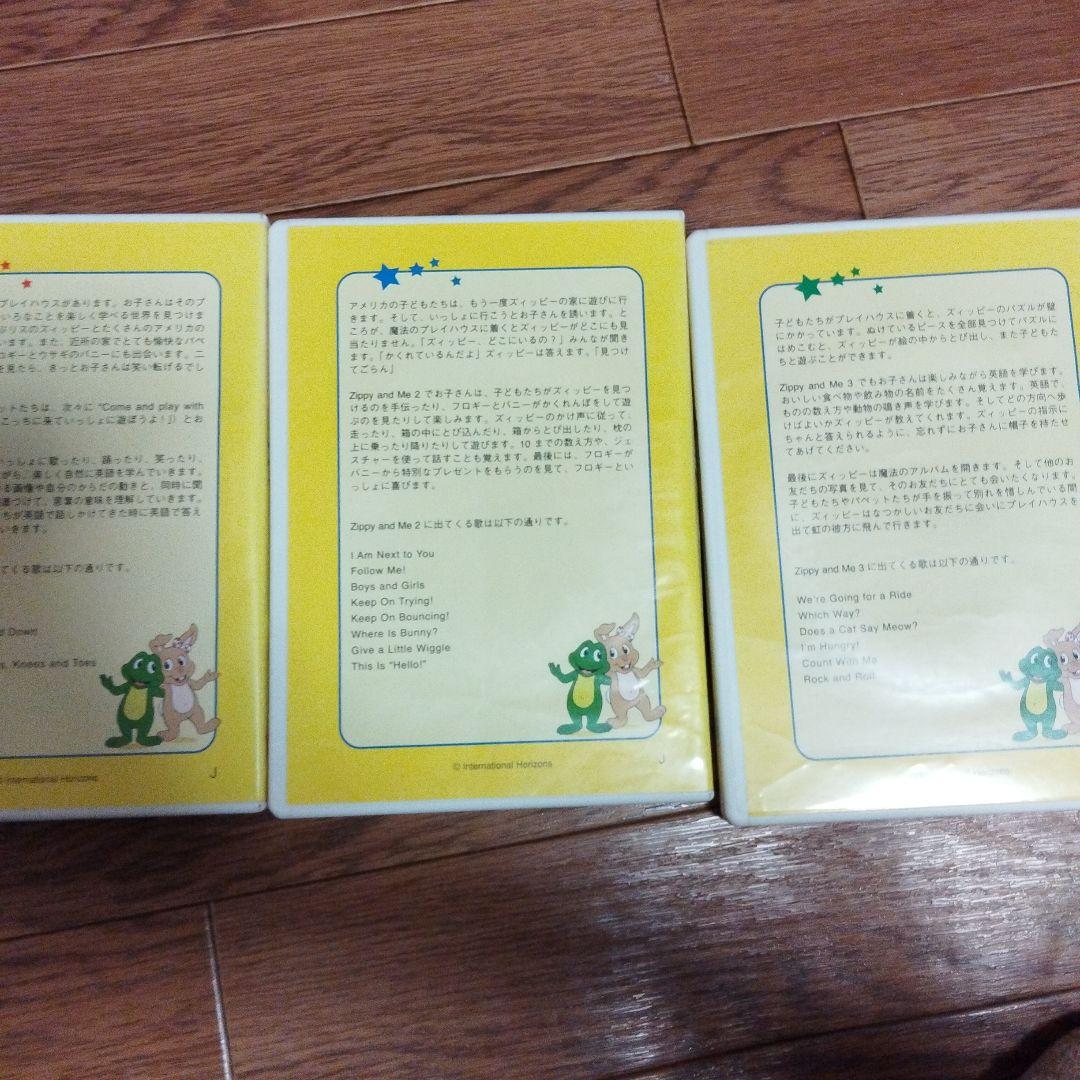 プレイハウスがあります。お子さんはそのプ
いろなことを楽しく学べる世界を見つけま
ぶリスのズィッピーとたくさんのアメリカの
います。また、近所の家でとても愉快なパペ
ロギーとウサギのバニーにも出会います。二
を見たら、きっとお子さんは笑い転げるでし
ットたちは、次々に "Come and play with
こっちに来ていっしょに遊ぼうよ!」とお
いっしょに歌ったり、踊ったり、笑ったり、
がら、楽しく自然に英語を学んでいきます。
る画像や自分のからだの動きと、同時に聞
連づけて、言葉の意味を理解していきます。
ちが英語で話しかけてきた時に英語で答え
いきます。
てくる歌は以下の通りです。
d Down!
s, Knees and Toes
© International Horizons
J
アメリカの子どもたちは、もう一度ズィッピーの家に遊びに行
きます。そして、いっしょに行こうとお子さんを誘います。と
ころが、魔法のプレイハウスに着くとズィッピーがどこにも見
当たりません。「ズィッピー、どこにいるの?」みんなが聞き
ます。「かくれているんだよ」ズィッピーは答えます。「見つけ
てごらん」
Zippy and Me 2 でお子さんは、子どもたちがズィッピーを見つ
けるのを手伝ったり、フロギーとバニーがかくれんぼをして遊
ぶのを見たりして楽しみます。ズィッピーのかけ声に従って、
走ったり、箱の中にとび込んだり、箱からとび出したり、枕の
上に乗ったり降りたりして遊びます。10 までの数え方や、ジェ
スチャーを使って話すことも覚えます。最後には、フロギーが
バニーから特別なプレゼントをもらうのを見て、フロギーとい
っしょに喜びます。
Zippy and Me 2 に出てくる歌は以下の通りです。
I Am Next to You
Follow Me!
Boys and Girls
Keep On Trying!
Keep On Bouncing!
Where Is Bunny?
Give a Little Wiggle
This Is "Hello!"
© International Horizons
J
子どもたちがプレイハウスに着くと、ズィッピーのパズルが壁
にかかっています。ぬけているピースを全部見つけてパズルに
はめこむと、ズィッピーが絵の中からとび出し、また子どもた
ちと遊ぶことができます。
Zippy and Me 3 でもお子さんは楽しみながら英語を学びます。
おいしい食べ物や飲み物の名前をたくさん覚えます。英語で、
ものの数え方や動物の鳴き声を学びます。そしてどの方向へ歩
けばよいかズィッピーが教えてくれます。ズィッピーの指示に
ちゃんと答えられるように、忘れずにお子さんに帽子を持たせ
てあげてください。
最後にズィッピーは魔法のアルバムを開きます。そして他のお
友だちの写真を見て、そのお友だちにとても会いたくなります。
子どもたちやパペットたちが手を振って別れを惜しんでいる間
に、ズィッピーはなつかしいお友だちに会いにプレイハウスを
出て虹の彼方に飛んで行きます。
Zippy and Me 3 に出てくる歌は以下の通りです。
We're Going for a Ride
Which Way?
Does a Cat Say Meow?
I'm Hungry!
Count With Me
Rock and Roll
Horizons